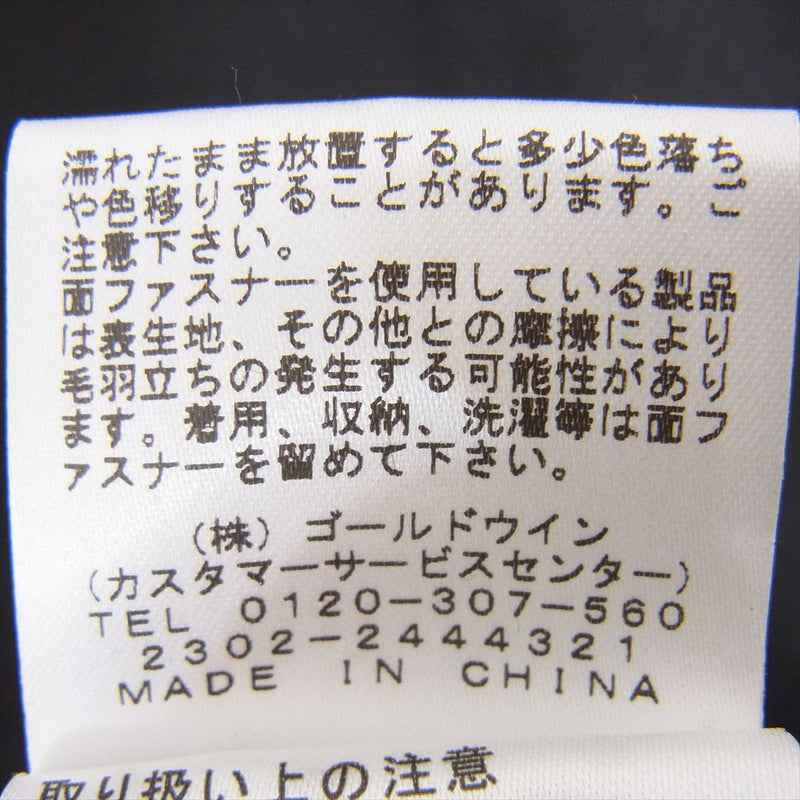 濡れたまま放置すると多少色落ち
や色移りすることがあります。ご
注意下さい。
面ファスナーを使用している製品
は表生地、その他との摩擦により
毛羽立ちの発生する可能性があり
ます。着用、収納、洗濯等は面フ
ァスナーを留めて下さい。
(株)ゴールドウイン
(カスタマーサービスセンター)
TEL 0120-307-560
2302-2444321
MADE IN CHINA
取り扱い上の注意